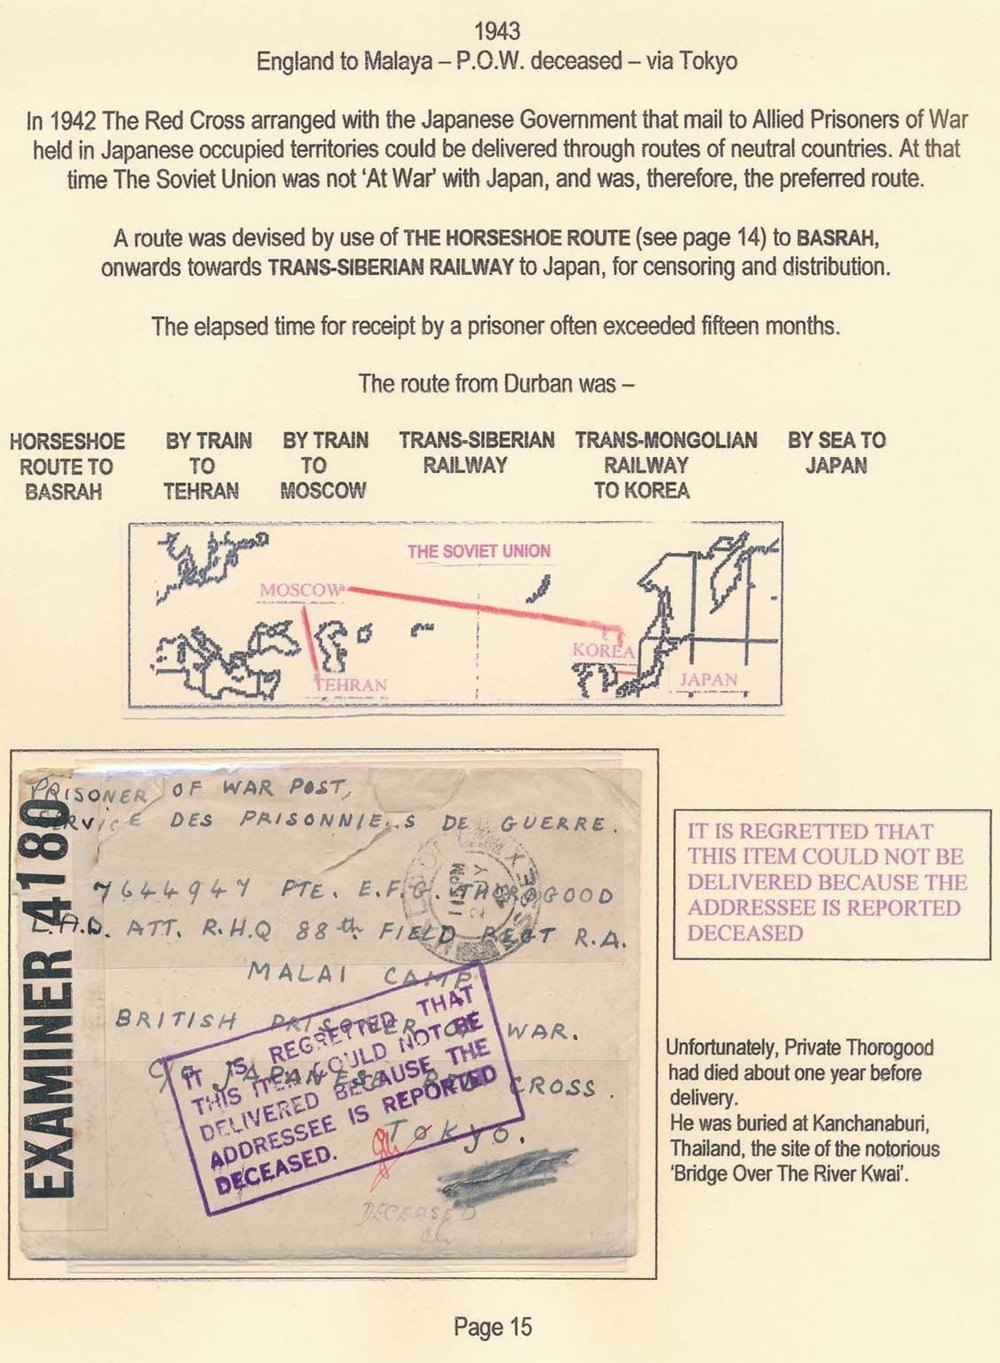 1943
England to Malaya – P.O.W. deceased – via Tokyo
In 1942 The Red Cross arranged with the Japanese Government that mail to Allied Prisoners of War
held in Japanese occupied territories could be delivered through routes of neutral countries. At that
time The Soviet Union was not 'At War' with Japan, and was, therefore, the preferred route.
A route was devised by use of THE HORSESHOE ROUTE (see page 14) to BASRAH,
onwards towards TRANS-SIBERIAN RAILWAY to Japan, for censoring and distribution.
The elapsed time for receipt by a prisoner often exceeded fifteen months.
The route from Durban was –
HORSESHOE
ROUTE TO
BASRAH
BY TRAIN
TO
TEHRAN
BY TRAIN
TO
MOSCOW
TRANS-SIBERIAN
RAILWAY
TRANS-MONGOLIAN
RAILWAY
TO KOREA
BY SEA TO
JAPAN
THE SOVIET UNION
MOSCOW
KOREA
TEHRAN
JAPAN
PRISONER OF WAR POST,
SERVICE DES PRISONNIERS DE GUERRE.
7644947 PTE. E.F.G. THOROGOOD
L.A.D. ATT. R.H.Q 88th FIELD REGT R.A.
MALAI CAMP
BRITISH PRISONER OF WAR.
C/o JAPANESE RED CROSS.
TOKYO.
EXAMINER 4180
115 PM
IT IS REGRETTED THAT
THIS ITEM COULD NOT BE
DELIVERED BECAUSE THE
ADDRESSEE IS REPORTED
DECEASED.
DECEASED
IT IS REGRETTED THAT
THIS ITEM COULD NOT BE
DELIVERED BECAUSE THE
ADDRESSEE IS REPORTED
DECEASED
Unfortunately, Private Thorogood
had died about one year before
delivery.
He was buried at Kanchanaburi,
Thailand, the site of the notorious
'Bridge Over The River Kwai'.
Page 15